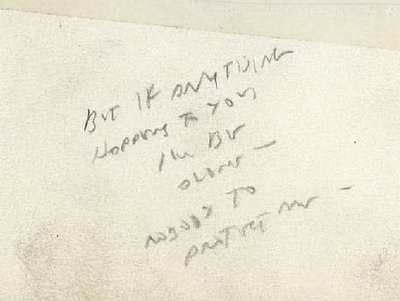 BUT IF ANYTHING
HAPPENS TO YOU
I'LL BE
ALONE —
NOBODY TO
PROTECT ME —